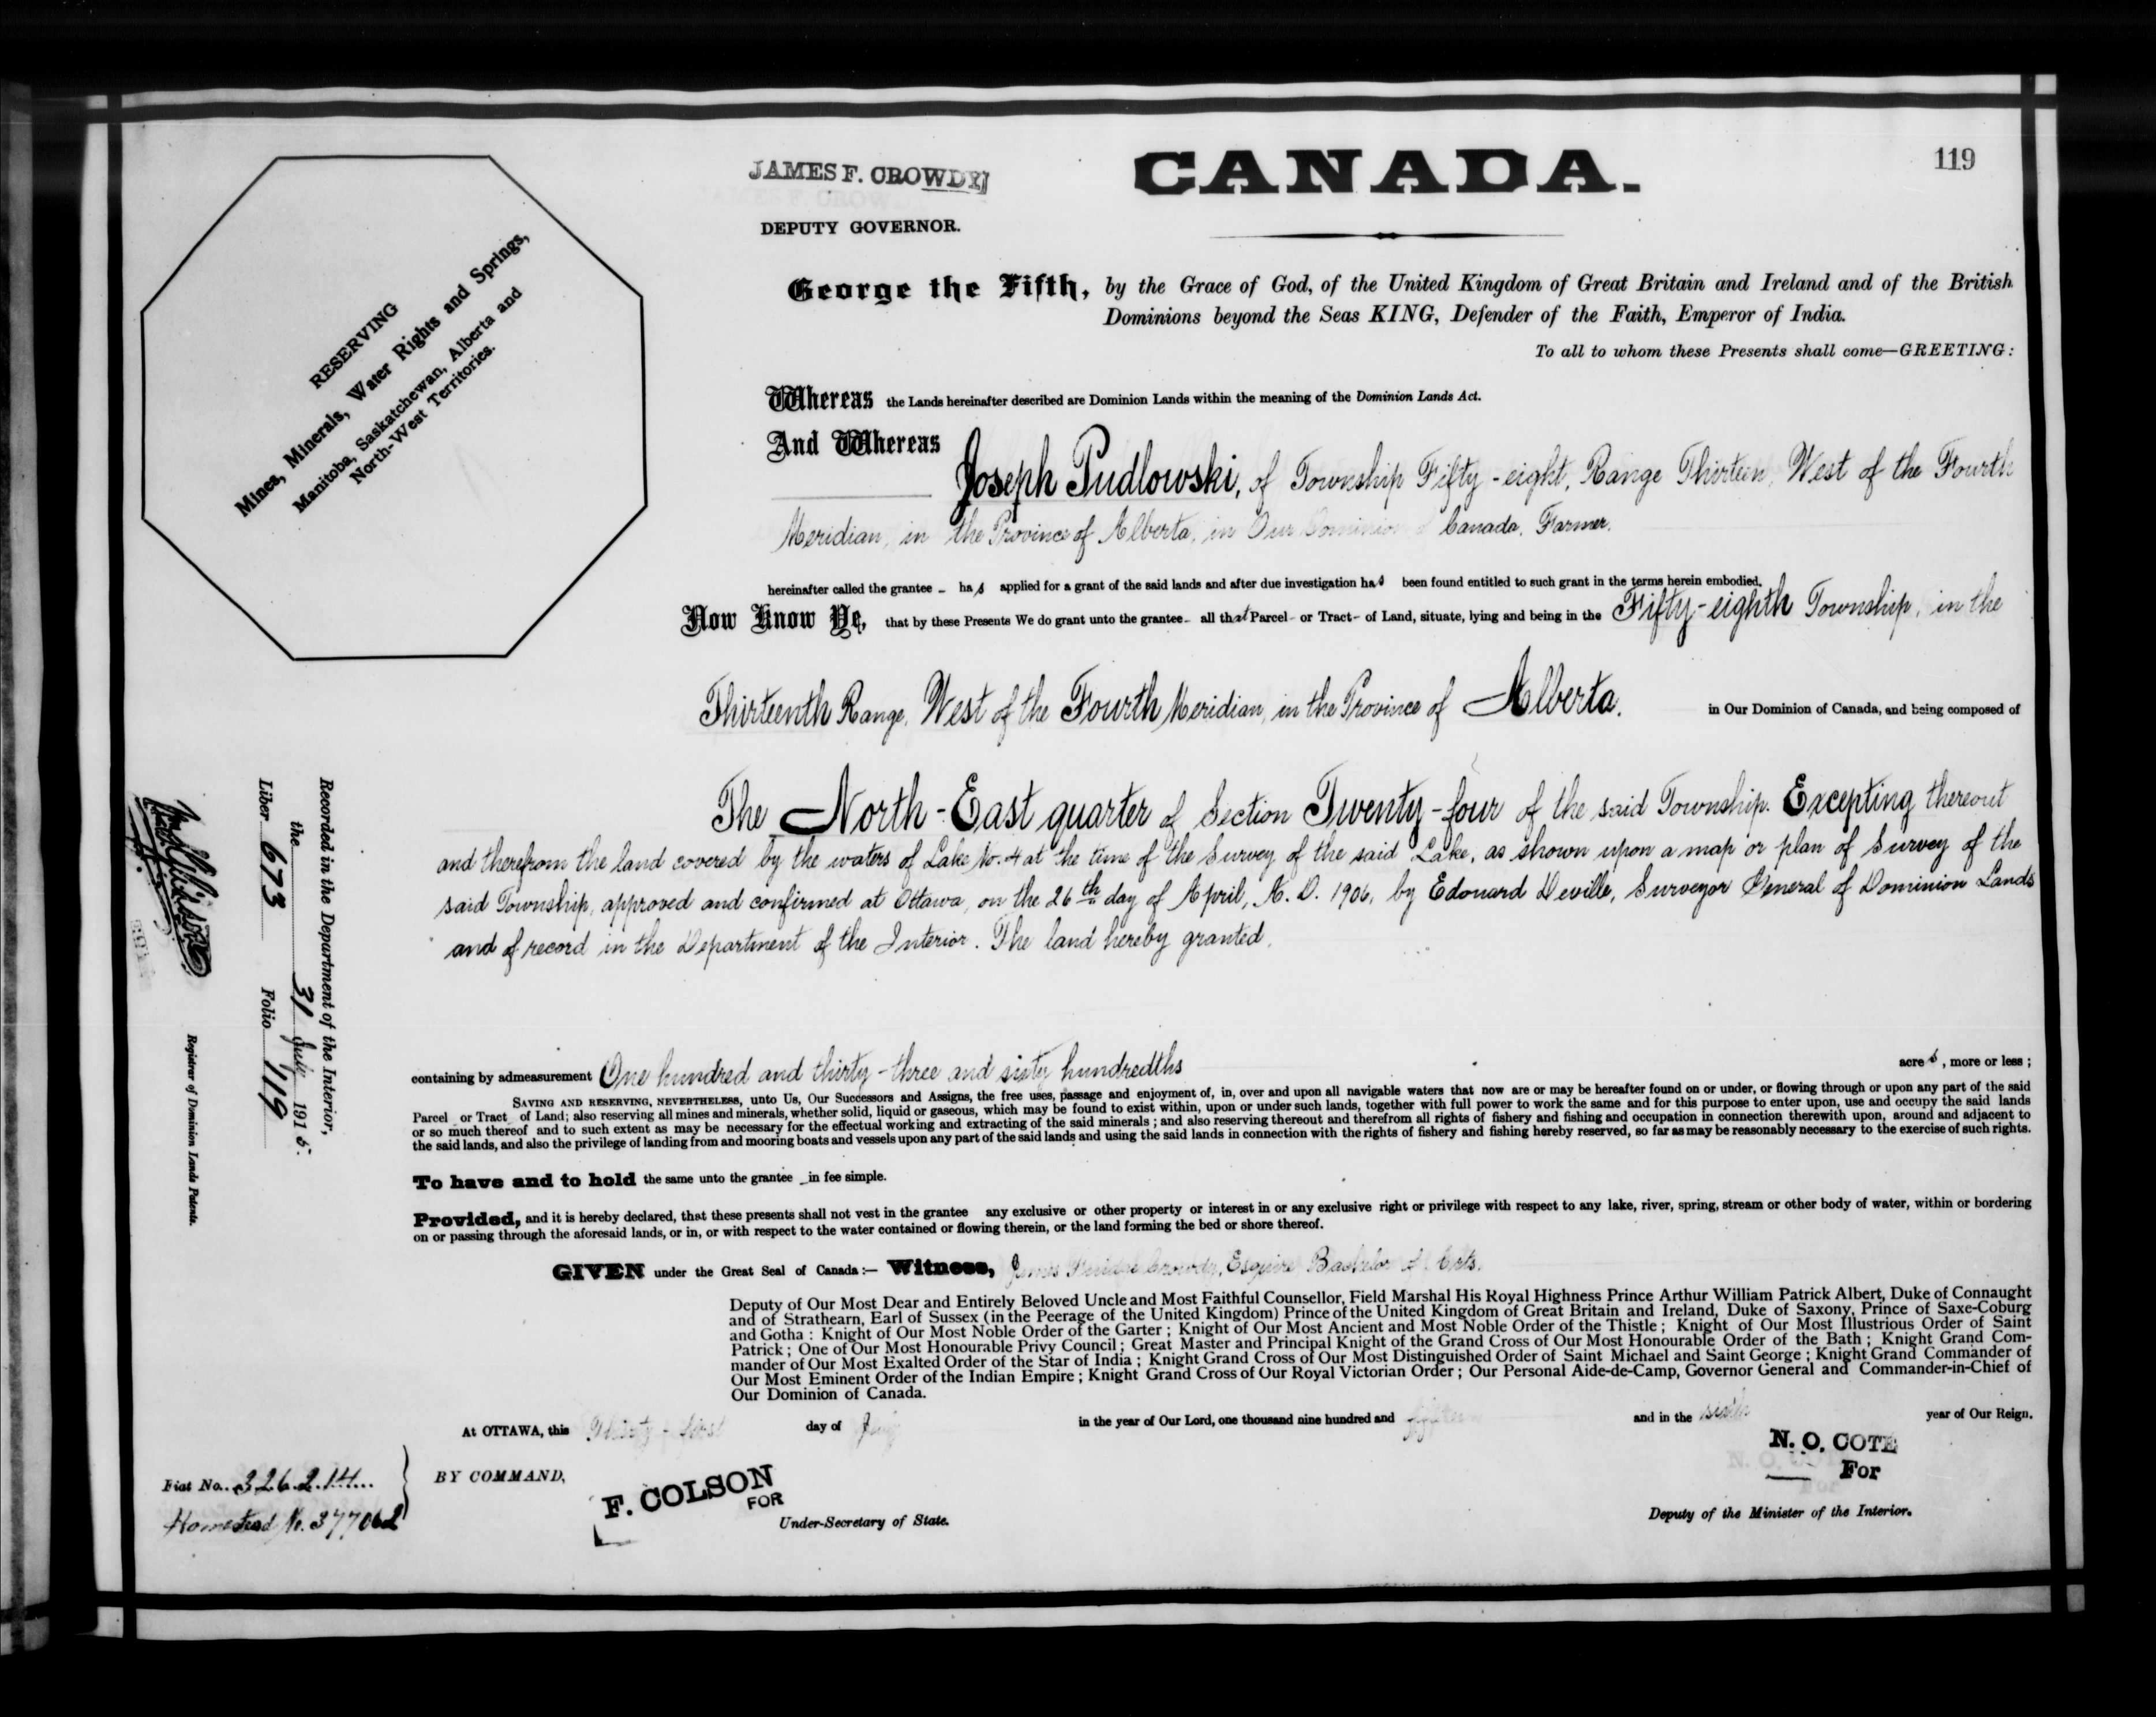 119
JAMES F. CROWDY
CANADA.
DEPUTY GOVERNOR.
RESERVING
Mines, Minerals, Water Rights and Springs,
Manitoba, Saskatchewan, Alberta and
North-West Territories.
George the Fifth, by the Grace of God, of the United Kingdom of Great Britain and Ireland and of the British
Dominions beyond the Seas KING, Defender of the Faith, Emperor of India.
To all to whom these Presents shall come—GREETING:
Whereas the Lands hereinafter described are Dominion Lands within the meaning of the Dominion Lands Act.
And Whereas
Joseph Pudlowski, of Township Fifty-eight, Range Thirteen, West of the Fourth
Meridian, in the Province of Alberta, in Our Dominion of Canada, Farmer.
hereinafter called the grantee - has applied for a grant of the said lands and after due investigation has been found entitled to such grant in the terms herein embodied.
Now Know Ye, that by these Presents We do grant unto the grantee- all that Parcel- or Tract- of Land, situate, lying and being in the Fifty-eighth Township, in the
Thirteenth Range, West of the Fourth Meridian, in the Province of Alberta. in Our Dominion of Canada, and being composed of
The North-East quarter of Section Twenty-four of the said Township. Excepting thereout
and therefrom the land covered by the waters of Lake No. 4 at the time of the Survey of the said Lake, as shown upon a map or plan of Survey of the
said Township, approved and confirmed at Ottawa, on the 26th day of April, A. D. 1906, by Edouard Deville, Surveyor General of Dominion Lands
and of record in the Department of the Interior. The land hereby granted,
containing by admeasurement One hundred and thirty-three and sixty hundredths acres, more or less;
SAVING AND RESERVING, NEVERTHELESS, unto Us, Our Successors and Assigns, the free uses, passage and enjoyment of, in, over and upon all navigable waters that now are or may be hereafter found on or under, or flowing through or upon any part of the said
Parcel or Tract of Land; also reserving all mines and minerals, whether solid, liquid or gaseous, which may be found to exist within, upon or under such lands, together with full power to work the same and for this purpose to enter upon, use and occupy the said lands
or so much thereof and to such extent as may be necessary for the effectual working and extracting of the said minerals; and also reserving thereout and therefrom all rights of fishery and fishing and occupation in connection therewith upon, around and adjacent to
the said lands, and also the privilege of landing from and mooring boats and vessels upon any part of the said lands and using the said lands in connection with the rights of fishery and fishing hereby reserved, so far as may be reasonably necessary to the exercise of such rights.
To have and to hold the same unto the grantee - in fee simple.
Provided, and it is hereby declared, that these presents shall not vest in the grantee any exclusive or other property or interest in or any exclusive right or privilege with respect to any lake, river, spring, stream or other body of water, within or bordering
on or passing through the aforesaid lands, or in, or with respect to the water contained or flowing therein, or the land forming the bed or shore thereof.
GIVEN under the Great Seal of Canada:— Witness, James Crowdy, Esquire Bachelor of Arts.
Deputy of Our Most Dear and Entirely Beloved Uncle and Most Faithful Counsellor, Field Marshal His Royal Highness Prince Arthur William Patrick Albert, Duke of Connaught
and of Strathearn, Earl of Sussex (in the Peerage of the United Kingdom) Prince of the United Kingdom of Great Britain and Ireland, Duke of Saxony, Prince of Saxe-Coburg
and Gotha: Knight of Our Most Noble Order of the Garter; Knight of Our Most Ancient and Most Noble Order of the Thistle; Knight of Our Most Illustrious Order of Saint
Patrick; One of Our Most Honourable Privy Council; Great Master and Principal Knight of the Grand Cross of Our Most Honourable Order of the Bath; Knight Grand Com-
mander of Our Most Exalted Order of the Star of India; Knight Grand Cross of Our Most Distinguished Order of Saint Michael and Saint George; Knight Grand Commander of
Our Most Eminent Order of the Indian Empire; Knight Grand Cross of Our Royal Victorian Order; Our Personal Aide-de-Camp, Governor General and Commander-in-Chief of
Our Dominion of Canada.
At OTTAWA, this Thirty-first day of July in the year of Our Lord, one thousand nine hundred and fifteen and in the sixth year of Our Reign.
BY COMMAND,
F. COLSON
FOR
Under-Secretary of State.
N. O. COTE
For
Deputy of the Minister of the Interior.
Fiat No. 326214
Homestead No. 377062
Recorded in the Department of the Interior,
the 31 July 1915.
Liber 673 Folio 119
Registrar of Dominion Lands Patents.